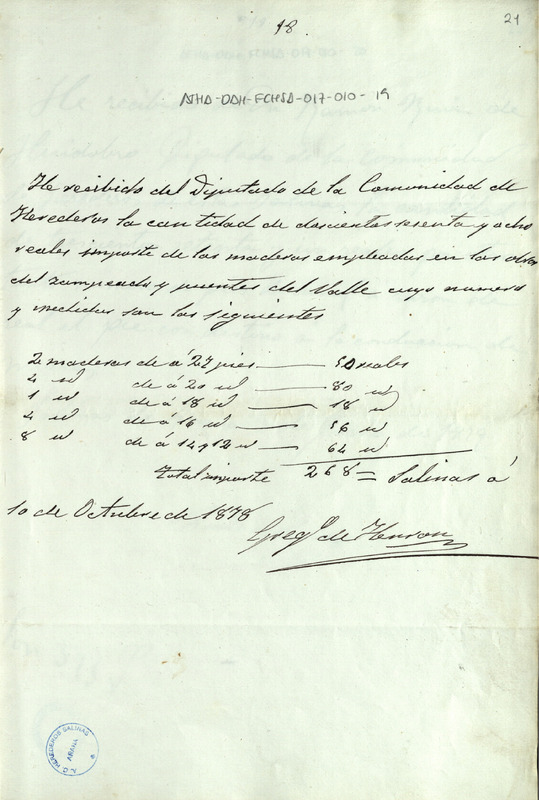 18.
21
AHA-DAH-FCHSA-017-010-19
He recibido del Diputado de la Comunidad de
Herederos la cantidad de doscientos sesenta y ocho
reales importe de las maderas empleadas en las obras
del zampeado y puentes del Valle cuyo numero
y medidas son las siguientes
2 maderas de á 27 pies 50 reales
4 id de á 20 id 80 id
1 id de á 18 id 18 id
4 id de á 16 id 56 id
8 id de á 14 y 12 id 64 id
Total importe 268 = Salinas á
10 de Octubre de 1878
Greg.º de Herran
A.C. HEREDEROS SALINAS
AÑANA